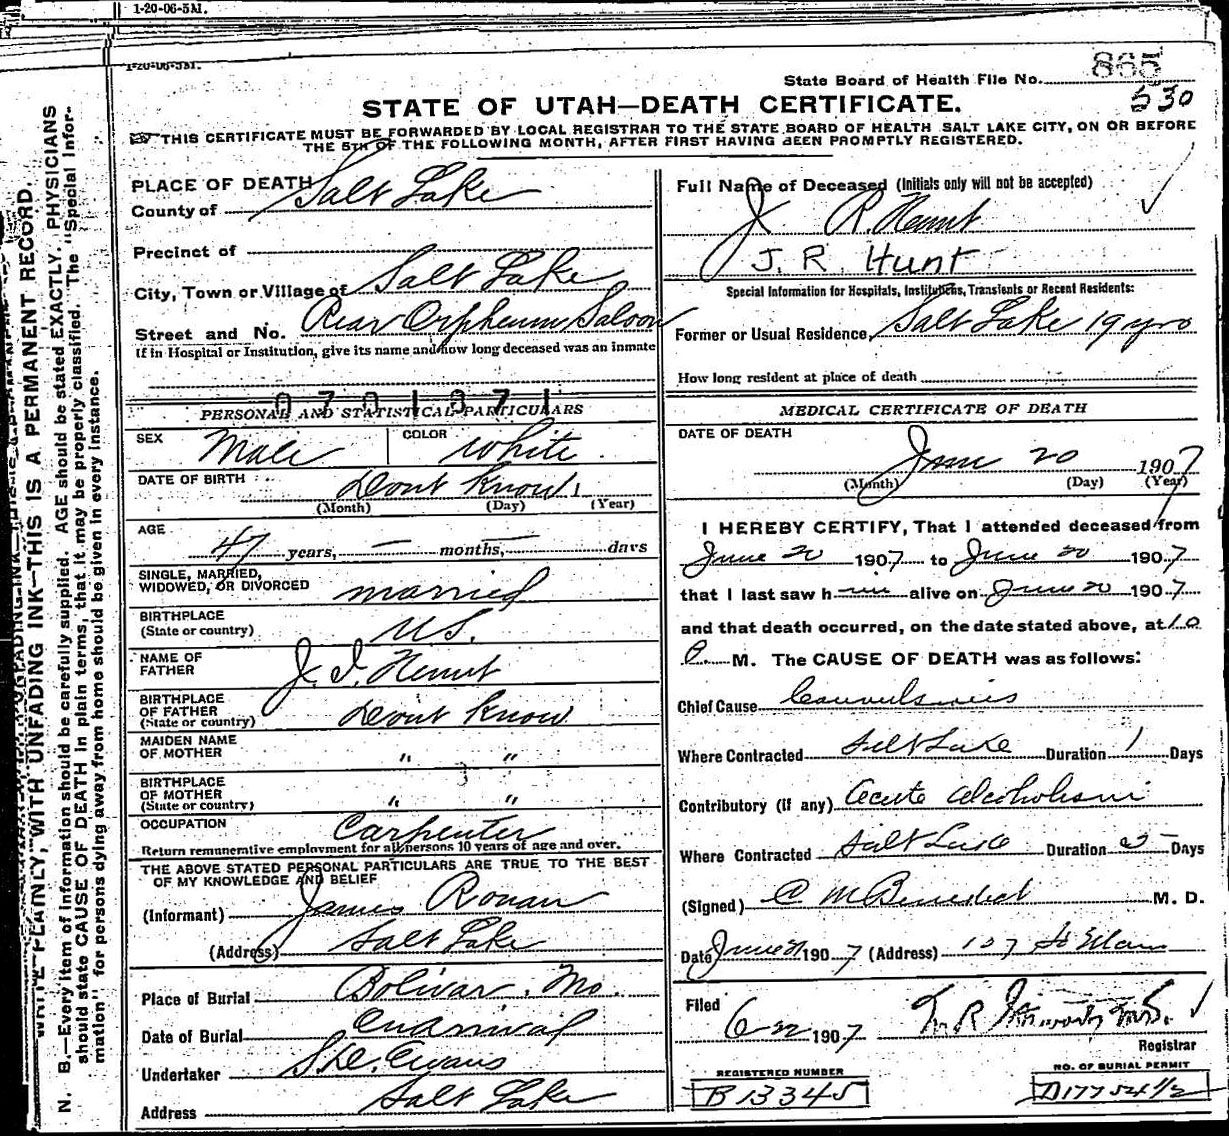 1-20-06-5M.
1-20-06-5M.
State Board of Health File No. 865
530
STATE OF UTAH—DEATH CERTIFICATE.
THIS CERTIFICATE MUST BE FORWARDED BY LOCAL REGISTRAR TO THE STATE BOARD OF HEALTH SALT LAKE CITY, ON OR BEFORE
THE 5TH OF THE FOLLOWING MONTH, AFTER FIRST HAVING BEEN PROMPTLY REGISTERED.
WRITE PLAINLY, WITH UNFADING INK—THIS IS A PERMANENT RECORD.
N. B.—Every item of information should be carefully supplied. AGE should be stated EXACTLY. PHYSICIANS
should state CAUSE OF DEATH in plain terms, that it may be properly classified. The "Special Infor-
mation" for persons dying away from home should be given in every instance.
PLACE OF DEATH
County of Salt Lake
Precinct of
City, Town or Village of Salt Lake
Street and No. Rear Orpheum Saloon
If in Hospital or Institution, give its name and how long deceased was an inmate
070187 1
PERSONAL AND STATISTICAL PARTICULARS
SEX Male COLOR White
DATE OF BIRTH Dont Know
(Month) (Day) (Year)
AGE 47 years, — months, — days
SINGLE, MARRIED,
WIDOWED, OR DIVORCED married
BIRTHPLACE
(State or country) U.S.
NAME OF
FATHER J. I. Hunt
BIRTHPLACE
OF FATHER
(State or country) Dont Know
MAIDEN NAME
OF MOTHER " "
BIRTHPLACE
OF MOTHER
(State or country) " "
OCCUPATION Carpenter
Return remunerative employment for all persons 10 years of age and over.
THE ABOVE STATED PERSONAL PARTICULARS ARE TRUE TO THE BEST
OF MY KNOWLEDGE AND BELIEF
(Informant) James Ronan
(Address) Salt Lake
Place of Burial Bolivar, Mo.
Date of Burial On Arrival
Undertaker S.D. Evans
Address Salt Lake
Full Name of Deceased (Initials only will not be accepted)
J. R. Hunt
J. R. Hunt
Special Information for Hospitals, Institutions, Transients or Recent Residents:
Former or Usual Residence, Salt Lake 19 yrs
How long resident at place of death
MEDICAL CERTIFICATE OF DEATH
DATE OF DEATH
June 20 1907
(Month) (Day) (Year)
I HEREBY CERTIFY, That I attended deceased from
June 20 1907 to June 20 1907
that I last saw him alive on June 20 1907
and that death occurred, on the date stated above, at 10
P. M. The CAUSE OF DEATH was as follows:
Chief Cause Convulsions
Where Contracted Salt Lake Duration 1 Days
Contributory (if any) Acute Alcoholism
Where Contracted Salt Lake Duration Days
(Signed) C M Benedict M. D.
Date June 21 1907 (Address) 127 So Main
Filed
6-22 1907
Registrar
REGISTERED NUMBER
B 13345
NO. OF BURIAL PERMIT
D17754 1/2